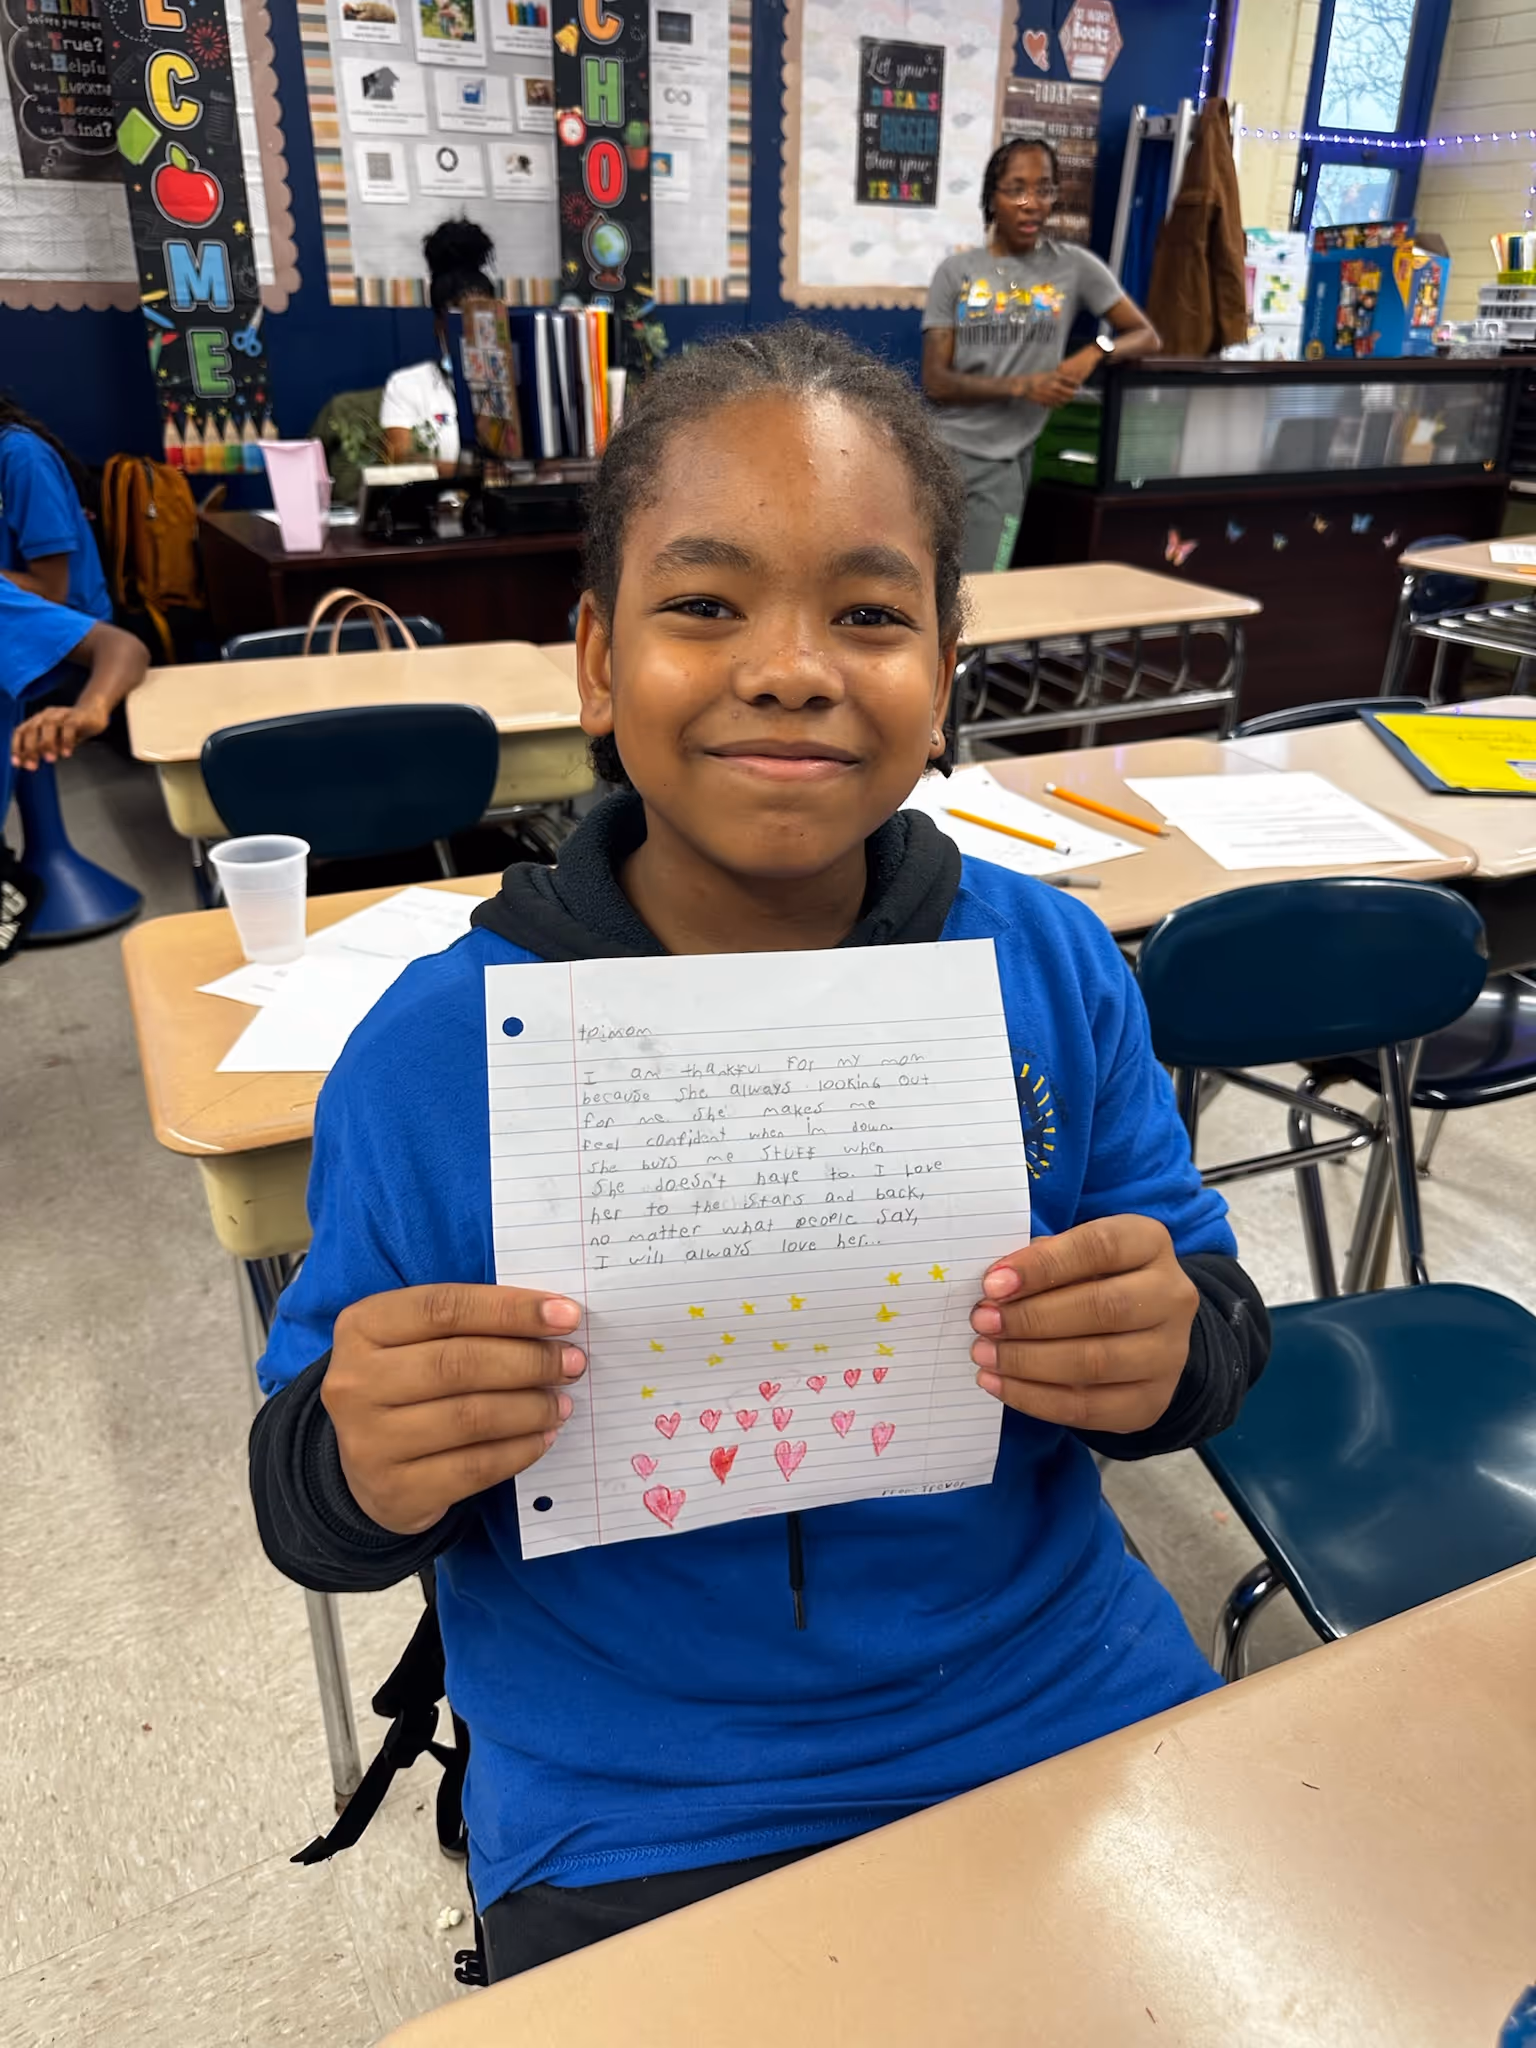 before you speak
True?
Helpful
Necess
Kind?
ECOME
CHOO
Let your
DREAMS
BE
BIGGER
than your
FEARS.
Books
TODAY
to:mom
I am thankful for my mom
because she always looking out
for me. she makes me
feel confident when im down.
she buys me stuff when
she doesn't have to. I Love
her to the stars and back,
no matter what people say,
I will always love her...
From: Trevor